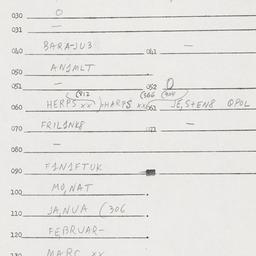 030 O
031 —
040 BARA-JU3 041 —
050 ANJMLT
051 — 052 O
(812 (366 (404
060 HERPS xx)+HARPS xx 061 JE,S+EN8 QPOL
070 FRIL1NK8 071 —
080 —
090 F1N1FTUK
100 MO,NAT
110 JA,NUA (306
120 FEBRUAR-
130 MARC xx